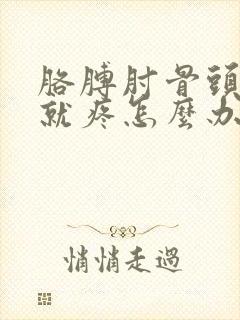 胳膊肘骨頭
就疼怎麼办
悄悄走過